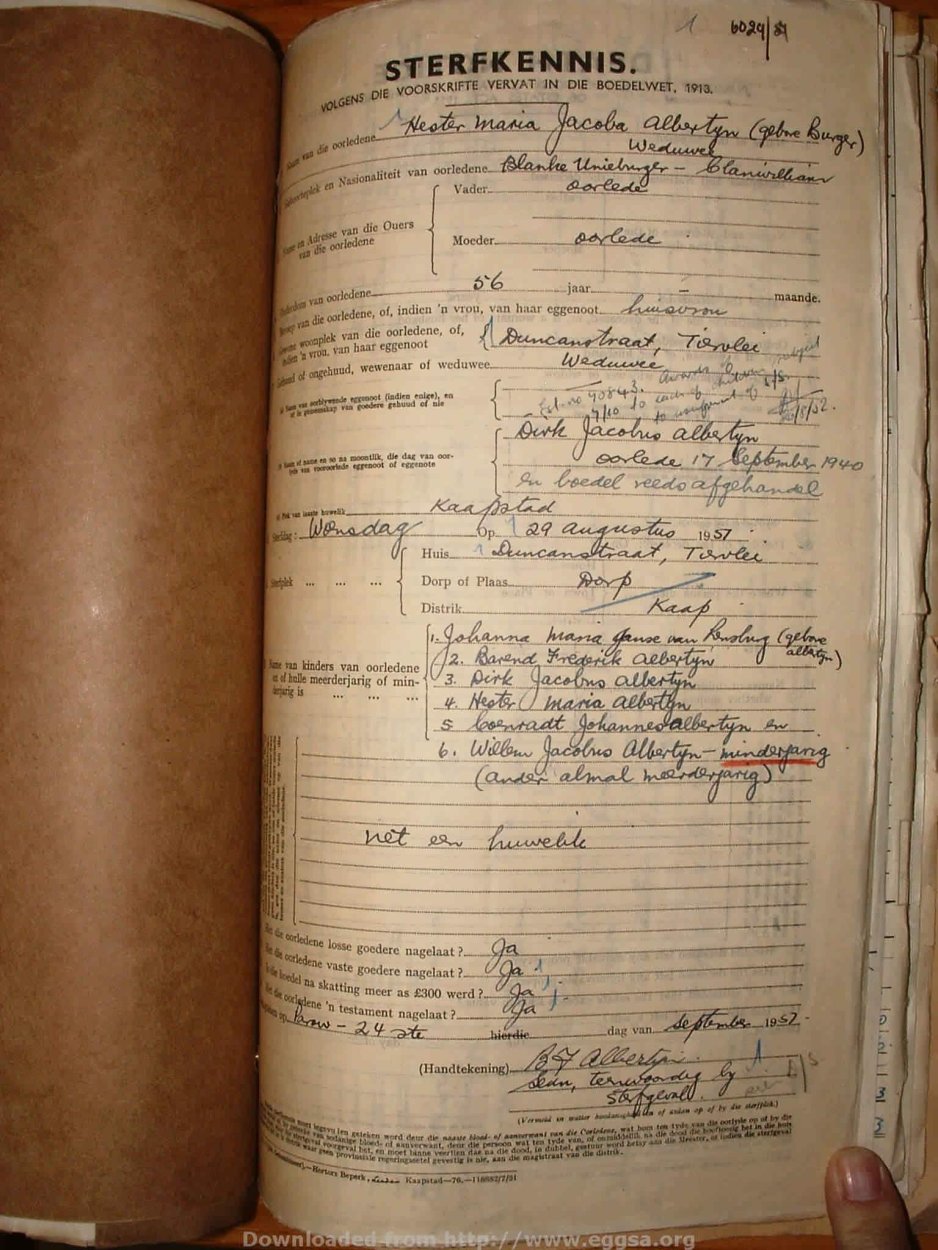 1 6029/51
STERFKENNIS.
VOLGENS DIE VOORSKRIFTE VERVAT IN DIE BOEDELWET, 1913.
Naam van die oorledene Hester Maria Jacoba Albertyn (gebore Burger)
Weduwee
Geboorteplek en Nasionaliteit van oorledene Blanke Unieburger - Clanwilliam
Vader oorlede
Name en Adresse van die Ouers
van die oorledene
Moeder oorlede
Ouderdom van oorledene 56 jaar - maande.
Beroep van die oorledene, of, indien 'n vrou, van haar eggenoot huisvrou
Gewone woonplek van die oorledene, of,
indien 'n vrou, van haar eggenoot Duncanstraat, Tiervlei
Gehuud of ongehuud, wewenaar of weduwee Weduwee
(a) Naam van oorblywende eggenoot (indien enige), en
of in gemeenskap van goedere gehuud of nie
Est. no. 70843.
Dirk Jacobus Albertyn
(b) Naam of name en so na moontlik, die dag van oor-
lyde van vooroorlede eggenoot of eggenote
oorlede 17 September 1940
en boedel reeds afgehandel
(c) Plek van laaste huwelik Kaapstad
Sterfdag: Woensdag Op 29 Augustus 1951
Huis Duncanstraat, Tiervlei
Sterfplek ... ... ... Dorp of Plaas Dorp
Distrik Kaap
1. Johanna Maria Janse van Rensburg (gebore
Albertyn)
Name van kinders van oorledene
en of hulle meerderjarig of min-
derjarig is ... ... ...
2. Barend Frederik Albertyn
3. Dirk Jacobus Albertyn
4. Hester Maria Albertyn
5 Coenradt Johannes Albertyn en
6. Willem Jacobus Albertyn - minderjarig
(ander almal meerderjarig)
net een huwelik
Het die oorledene losse goedere nagelaat? Ja
Het die oorledene vaste goedere nagelaat? Ja
Is die boedel na skatting meer as £300 werd? Ja
Het die oorledene 'n testament nagelaat? Ja
Parow - 24 ste hierdie dag van September 1951
(Handtekening) B F Albertyn
Seun, teenwoordig by
Sterfgeval.
(Vermeld in watter hoedanigheid en of aldan op of by die sterfplek.)
Hortors Beperk, Kaapstad
Downloaded from http://www.eggsa.org